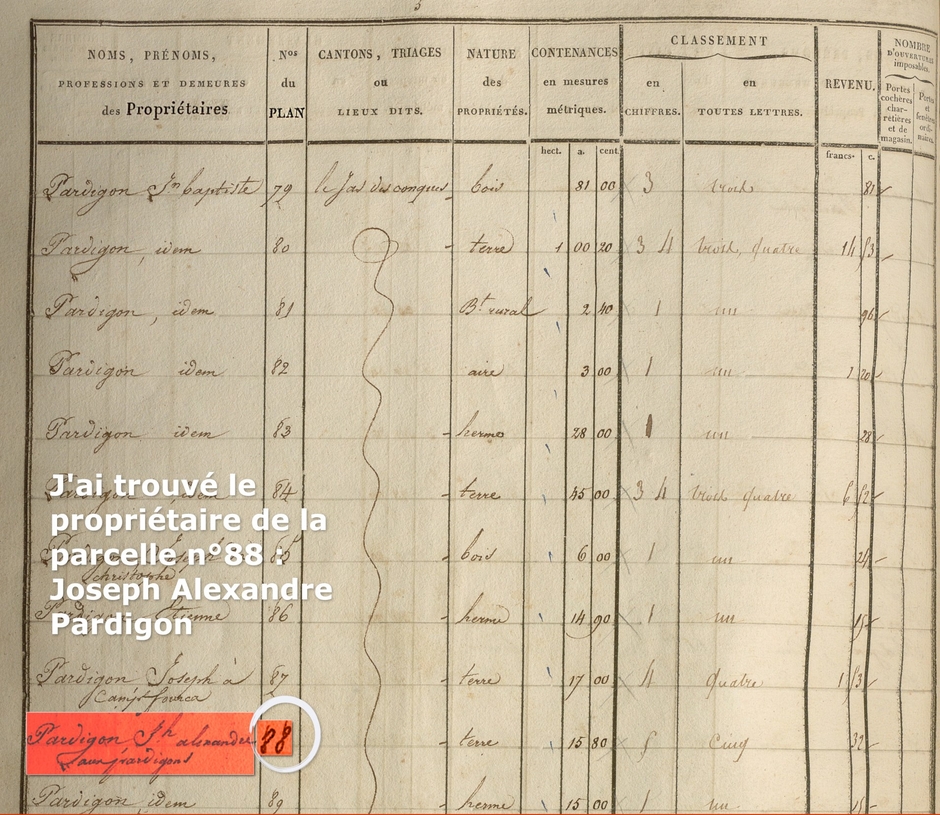 NOMS, PRÉNOMS,
PROFESSIONS ET DEMEURES
des Propriétaires
Nos
du
PLAN
CANTONS, TRIAGES
ou
LIEUX DITS.
NATURE
des
PROPRIÉTÉS.
CONTENANCES
en mesures
métriques.
CLASSEMENT
en
CHIFFRES.
en
TOUTES LETTRES.
REVENU.
NOMBRE
D'OUVERTURES
imposables.
Portes
cochères
char-
retières
et de
magasin.
Portes
et
fenêtres
ordi-
naires.
hect. a. cent.
francs. c.
Pardigon Jn baptiste 79 le Jas des conques bois 81 00 3 trois 81
Pardigon, idem 80 terre 1 00 20 3 4 trois, quatre 14 53
Pardigon, idem 81 Bt rural 2 40 1 un 96
Pardigon idem 82 aire 3 00 1 un 1 20
Pardigon idem 83 herme 28 00 1 un 28
84 terre 45 00 3 4 trois quatre 6 52
85 bois 6 00 1 un 24
christophe
Pardigon Etienne 86 herme 14 90 1 un 15
Pardigon Joseph à 87 terre 17 00 4 quatre 1 53
Camp fourca
Pardigon Jh alexandre 88 terre 15 80 5 Cinq 32
aux pardigons
Pardigon idem 89 herme 15 00 1 un 15
J'ai trouvé le
propriétaire de la
parcelle n°88 :
Joseph Alexandre
Pardigon